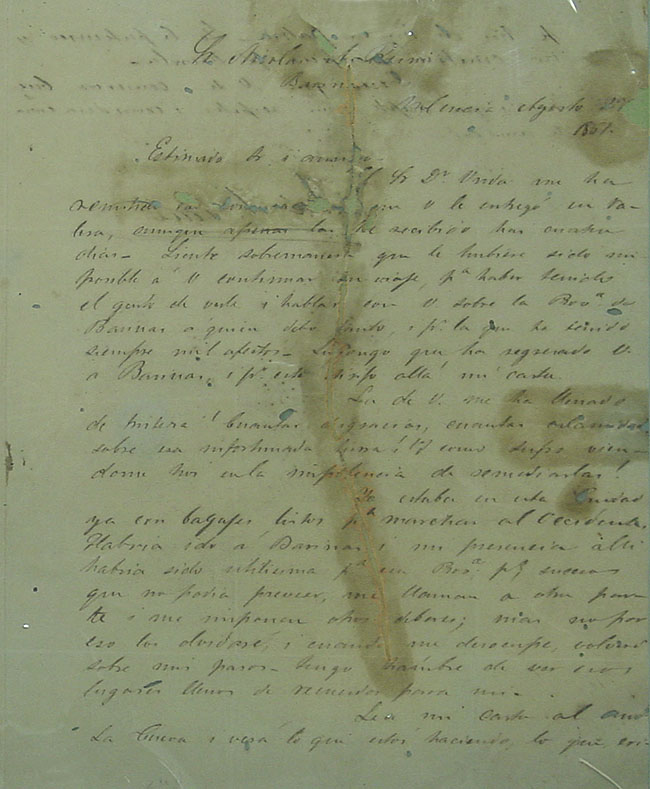 Sr Nicolas
Barinas
Valencia Agosto
1861.
Estimado Sr. i amigo
El Sr Dr. Uzda me ha
remitido la que V le entregó en Va-
lera, aunque apenas la he recibido hai cuatro
dias - Siento sobremanera que le hubiese sido im-
posible a V continuar su viaje, pa. haber tenido
el gusto de verle i hablar con V. sobre la Prova. de
Barinas a quien debo tanto, i pr. la que he tenido
siempre mil afectos - Supongo que ha regresado V.
a Barinas, i pr. eso dirijo allá mi carta
La de V. me ha llenado
de tristeza! Cuantas desgracias, cuantas calamidades
sobre esa infortunada tierra! Yo como sufro vien-
dome hoi en la impotencia de remediarlas!
Yo estaba en esta Ciudad
ya con bagajes listos pa. marchar al Occidente.
Habria ido á Barinas i mi presencia alli
habria sido utilisima pa. esa Prova. pr. sucesos
que no podia preveer, me llaman a otra par-
te i me imponen otros deberes; mas no por
eso los olvidaré, i cuando me desocupe, volveré
sobre mis pasos - Tengo hambre de ver esos
lugares llenos de recuerdos para mi -
Lea mi carta al amo
La Cueva i verá lo que estoi haciendo, lo que